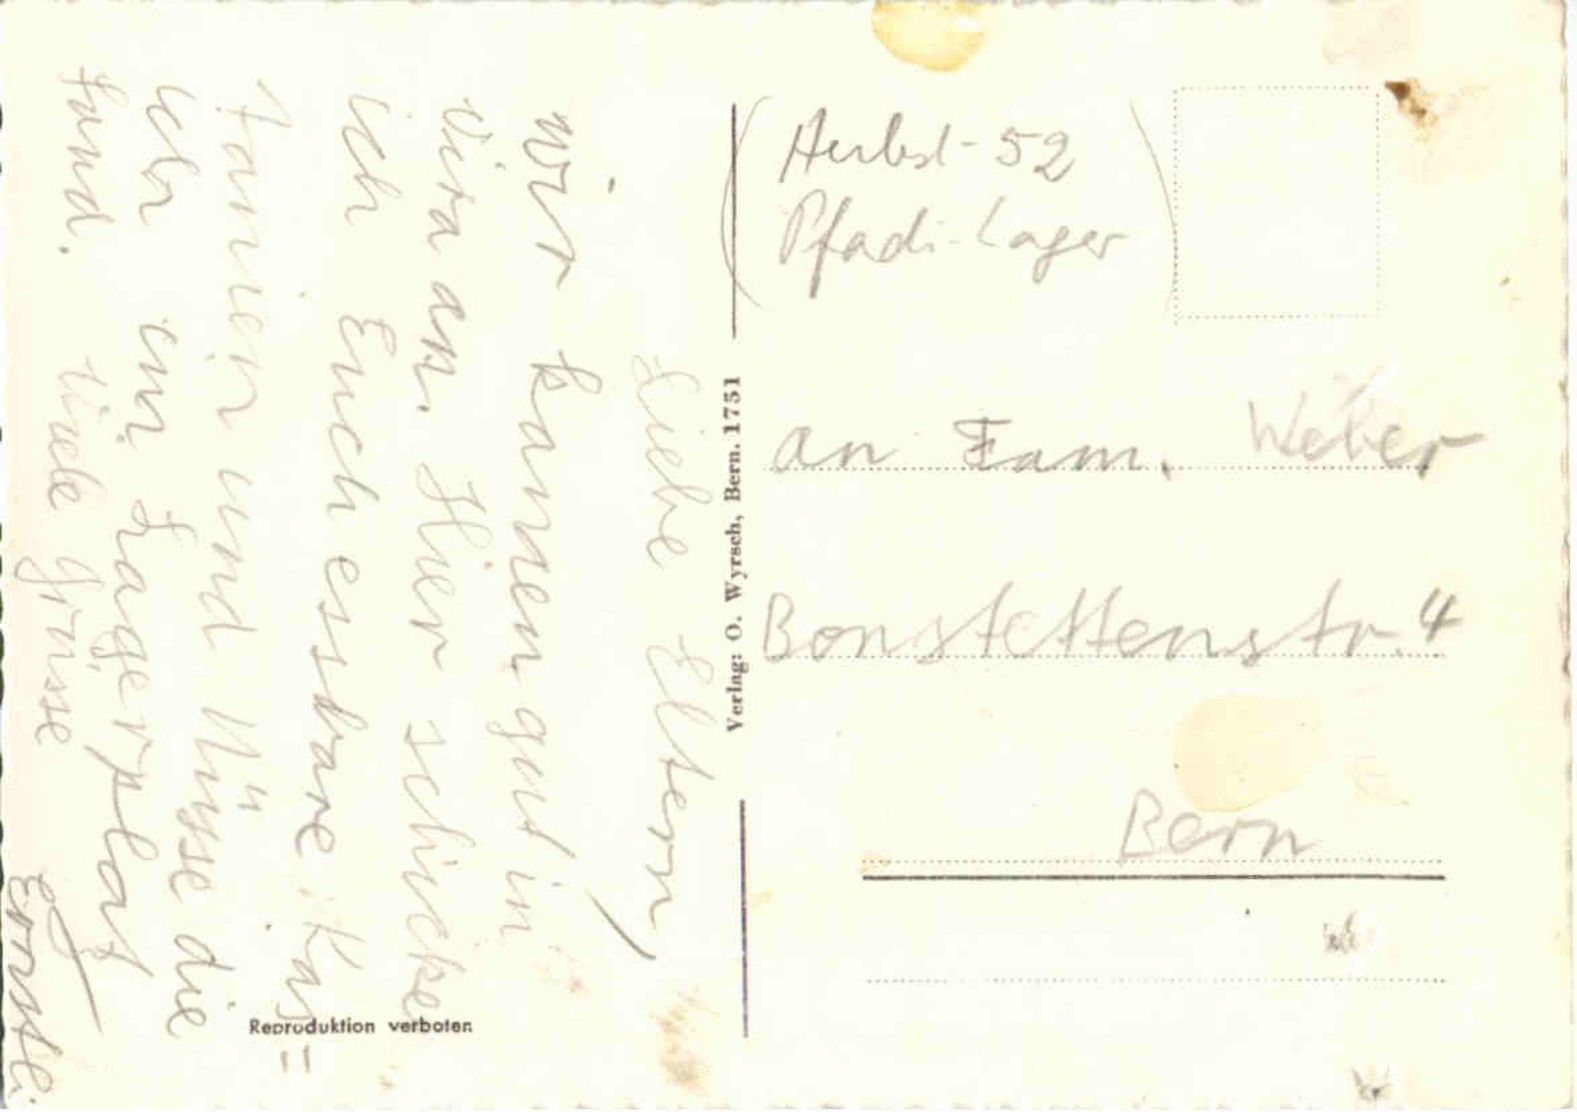 Liebe Eltern,
Wir kamen gut in
Vira an. Hier schicke
ich Euch essbare Kas=
tanien und Nüsse die
ich im Lagerplat
fand. Viele Grüsse
Ernstli
Verlag: O. Wyrsch, Bern. 1751
Reproduktion verboten
(Herbst-52
Pfadi-Lager)
An Fam. Weber
Bonstettenstr. 4
Bern